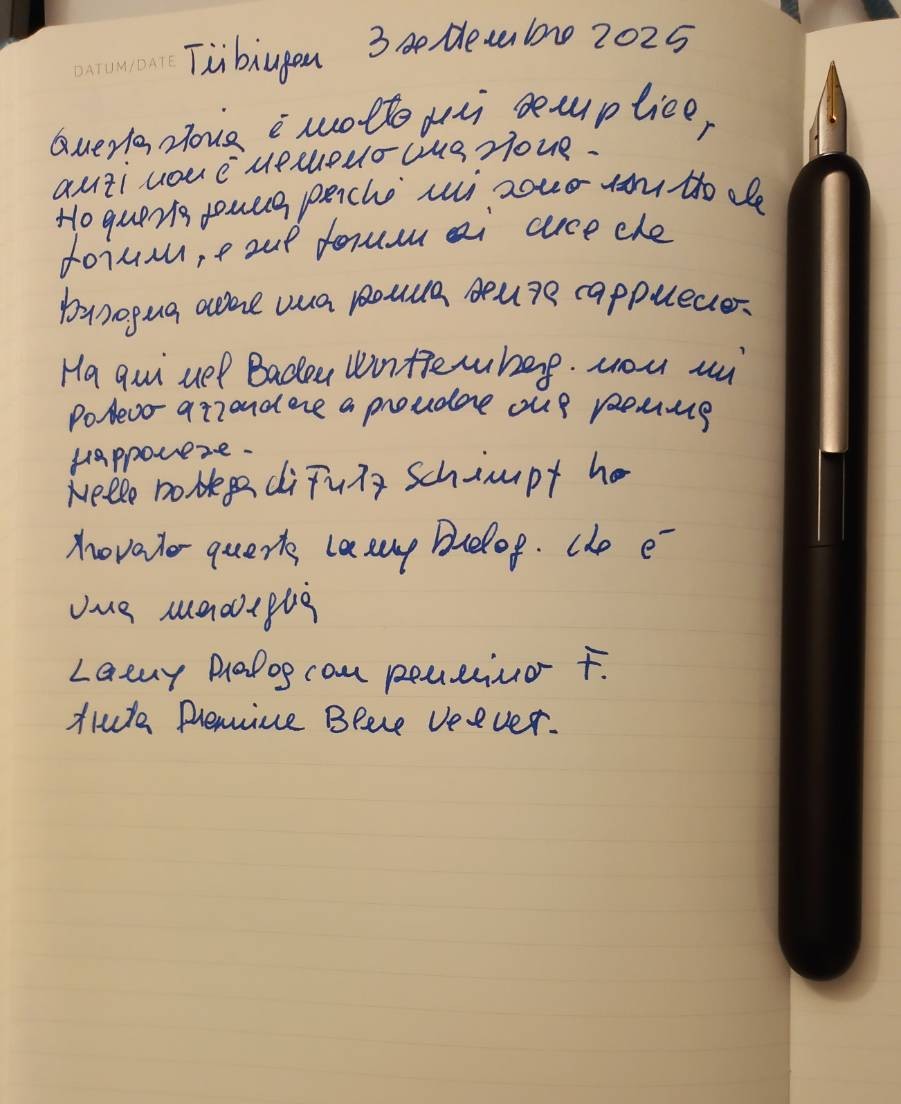 DATUM/DATE Tübingen 3 settembre 2025
Questa storia è molto più semplice,
anzi non è nemmeno una storia.
Ho questa penna perché mi sono iscritto al
forum, e sul forum si dice che
bisogna avere una penna senza cappuccio.
Ma qui nel Baden Württemberg. non mi
potevo azzardare a prendere una penna
giapponese.
Nella bottega di Fritz Schimpf ho
trovato questa Lamy Dialog. che è
una meraviglia
Lamy Dialog con pennino F.
tinta Diamine Blue Velvet.